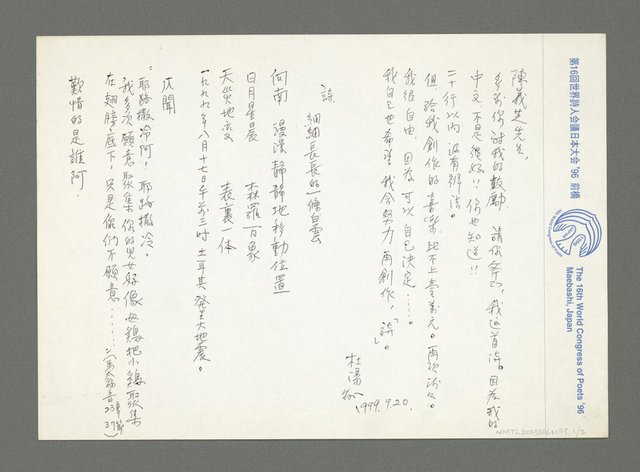 第16回世界詩人会議日本大会 '96 前橋
The 16th World Congress of Poets '96
Maebashi, Japan
陳義芝先生,
多謝你對我的鼓勵 請你 我這首詩。因為我的
中文不是很好!! 你也知道!!
二十行以內沒有辦法。
但,給我創作的喜樂,比不上壹萬元。再
我很自由,因為可以自己決定……。
我自己也希望我会努力再創作,「詩」。
杜潘
1999.9.20.
詩 細細長長的一條白雲
向南 漫漫靜靜地移動位置
日月星晨 森羅百象
天災地変 表裏一体
一九九九年八月十七日午前三時 土耳其発生大地震。
次聞
"耶路撒冷阿,耶路撒冷,
我多次願意聚集你的兒女好像母鷄把小鷄聚集
在翅膀底下,只是你們不願意……"(馬太福音23章37節)
歎惜的是誰阿.
NMTL20050260095 1/2